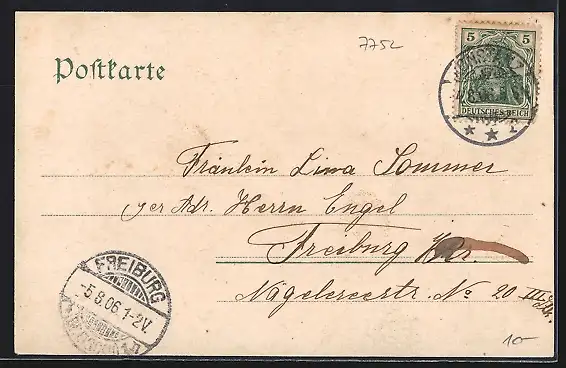 7752
5 5
Postkarte
DEUTSCHES REICH
Fräulein Lina Sommer
per Adr. Herrn Engel
Freiburg
FREIBURG
-5.8.06.1-2V.
Nägeleseestr. No 20 III.
10-